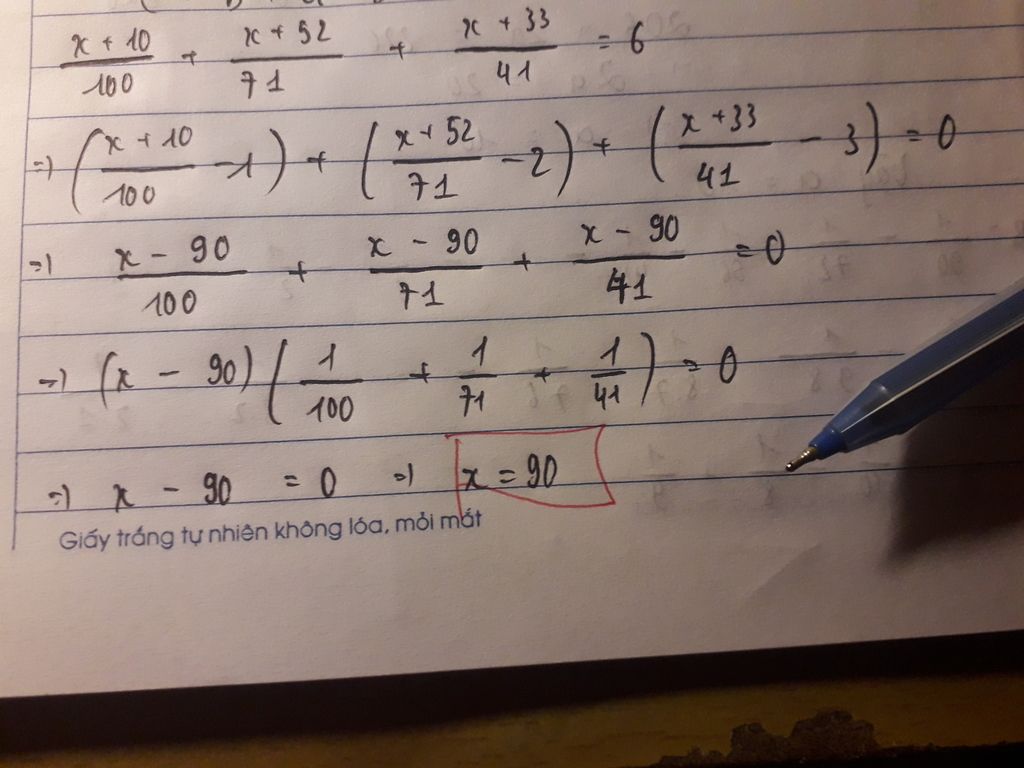 x + 10/100 + x + 52/71 + x + 33/41 = 6
=> (x + 10/100 - 1) + (x + 52/71 - 2) + (x + 33/41 - 3) = 0
=> x - 90/100 + x - 90/71 + x - 90/41 = 0
=> (x - 90) (1/100 + 1/71 + 1/41) = 0
=> x - 90 = 0 => x = 90
Giấy trắng tự nhiên không lóa, mỏi mắt